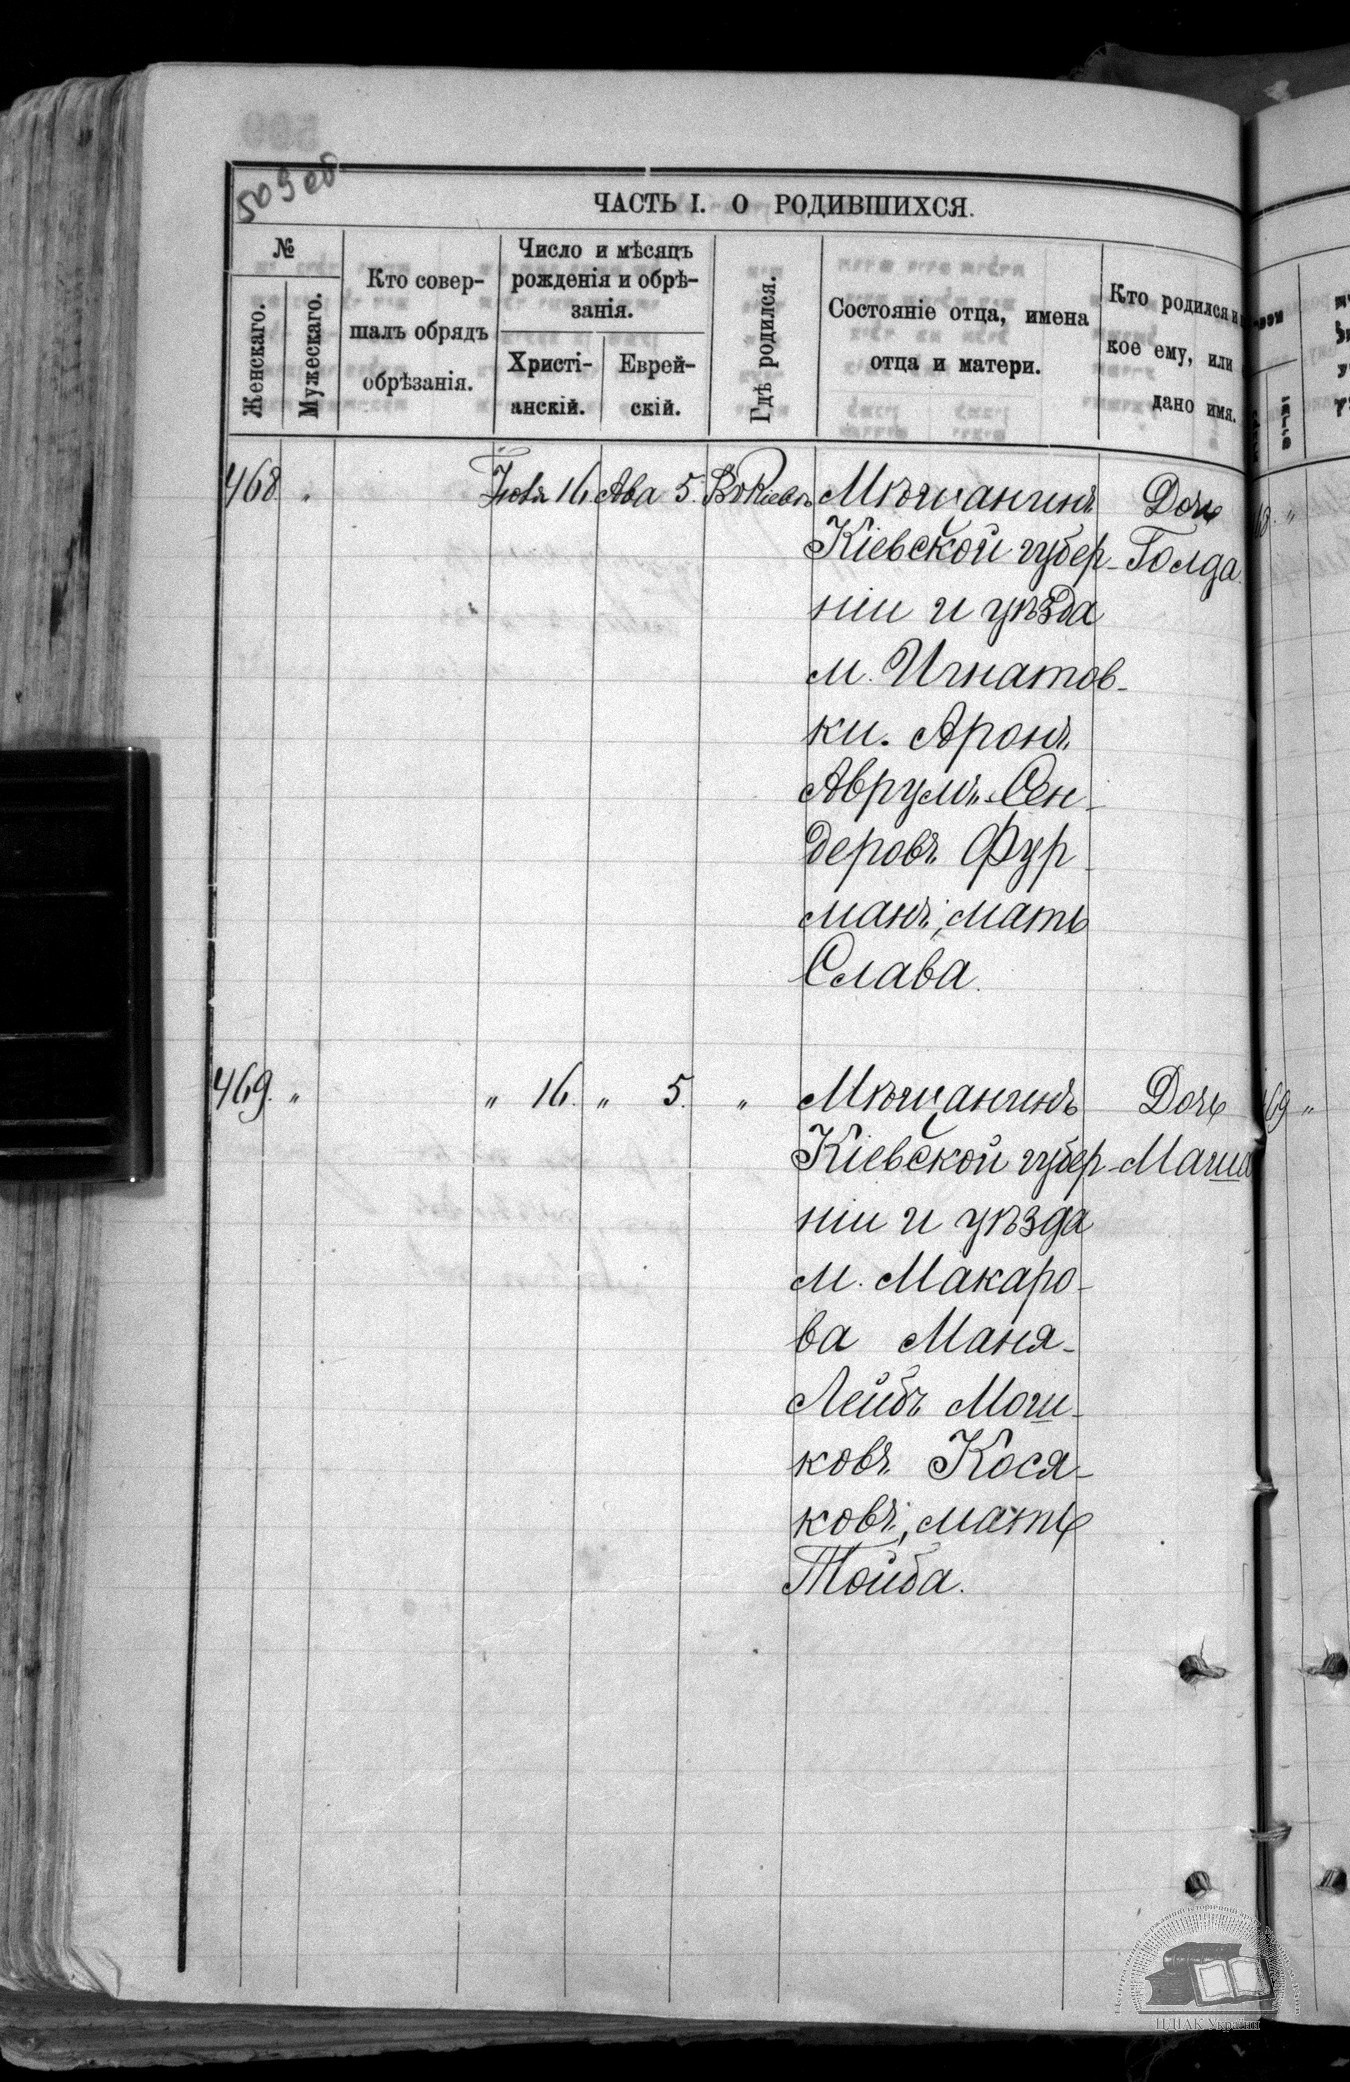 509 об
ЧАСТЬ I. О РОДИВШИХСЯ.
№
Женскаго.
Мужескаго.
Кто совер-
шалъ обрядъ
обрѣзанія.
Число и мѣсяцъ
рожденія и обрѣ-
занія.
Христі-
анскій.
Еврей-
скій.
Гдѣ родился.
Состояніе отца, имена
отца и матери.
Кто родился и
кое ему, или
дано имя.
468 " Іюля 16 Ава 5. Въ Кіевѣ Мѣщанинъ Дочь
Кіевской губер- Голда
ніи и уѣзда
м. Игнатов-
ки. Аронъ
Аврумъ-Сен-
деровъ Фур-
манъ, мать
Слава.
469. " " 16. " 5. " Мѣщанинъ Дочь
Кіевской губер- Маша
ніи и уѣзда
м. Макаро-
ва Маня-
Лейбъ Мош-
ковъ Кося-
ковъ, мать
Тойба.
ЦДІАК України